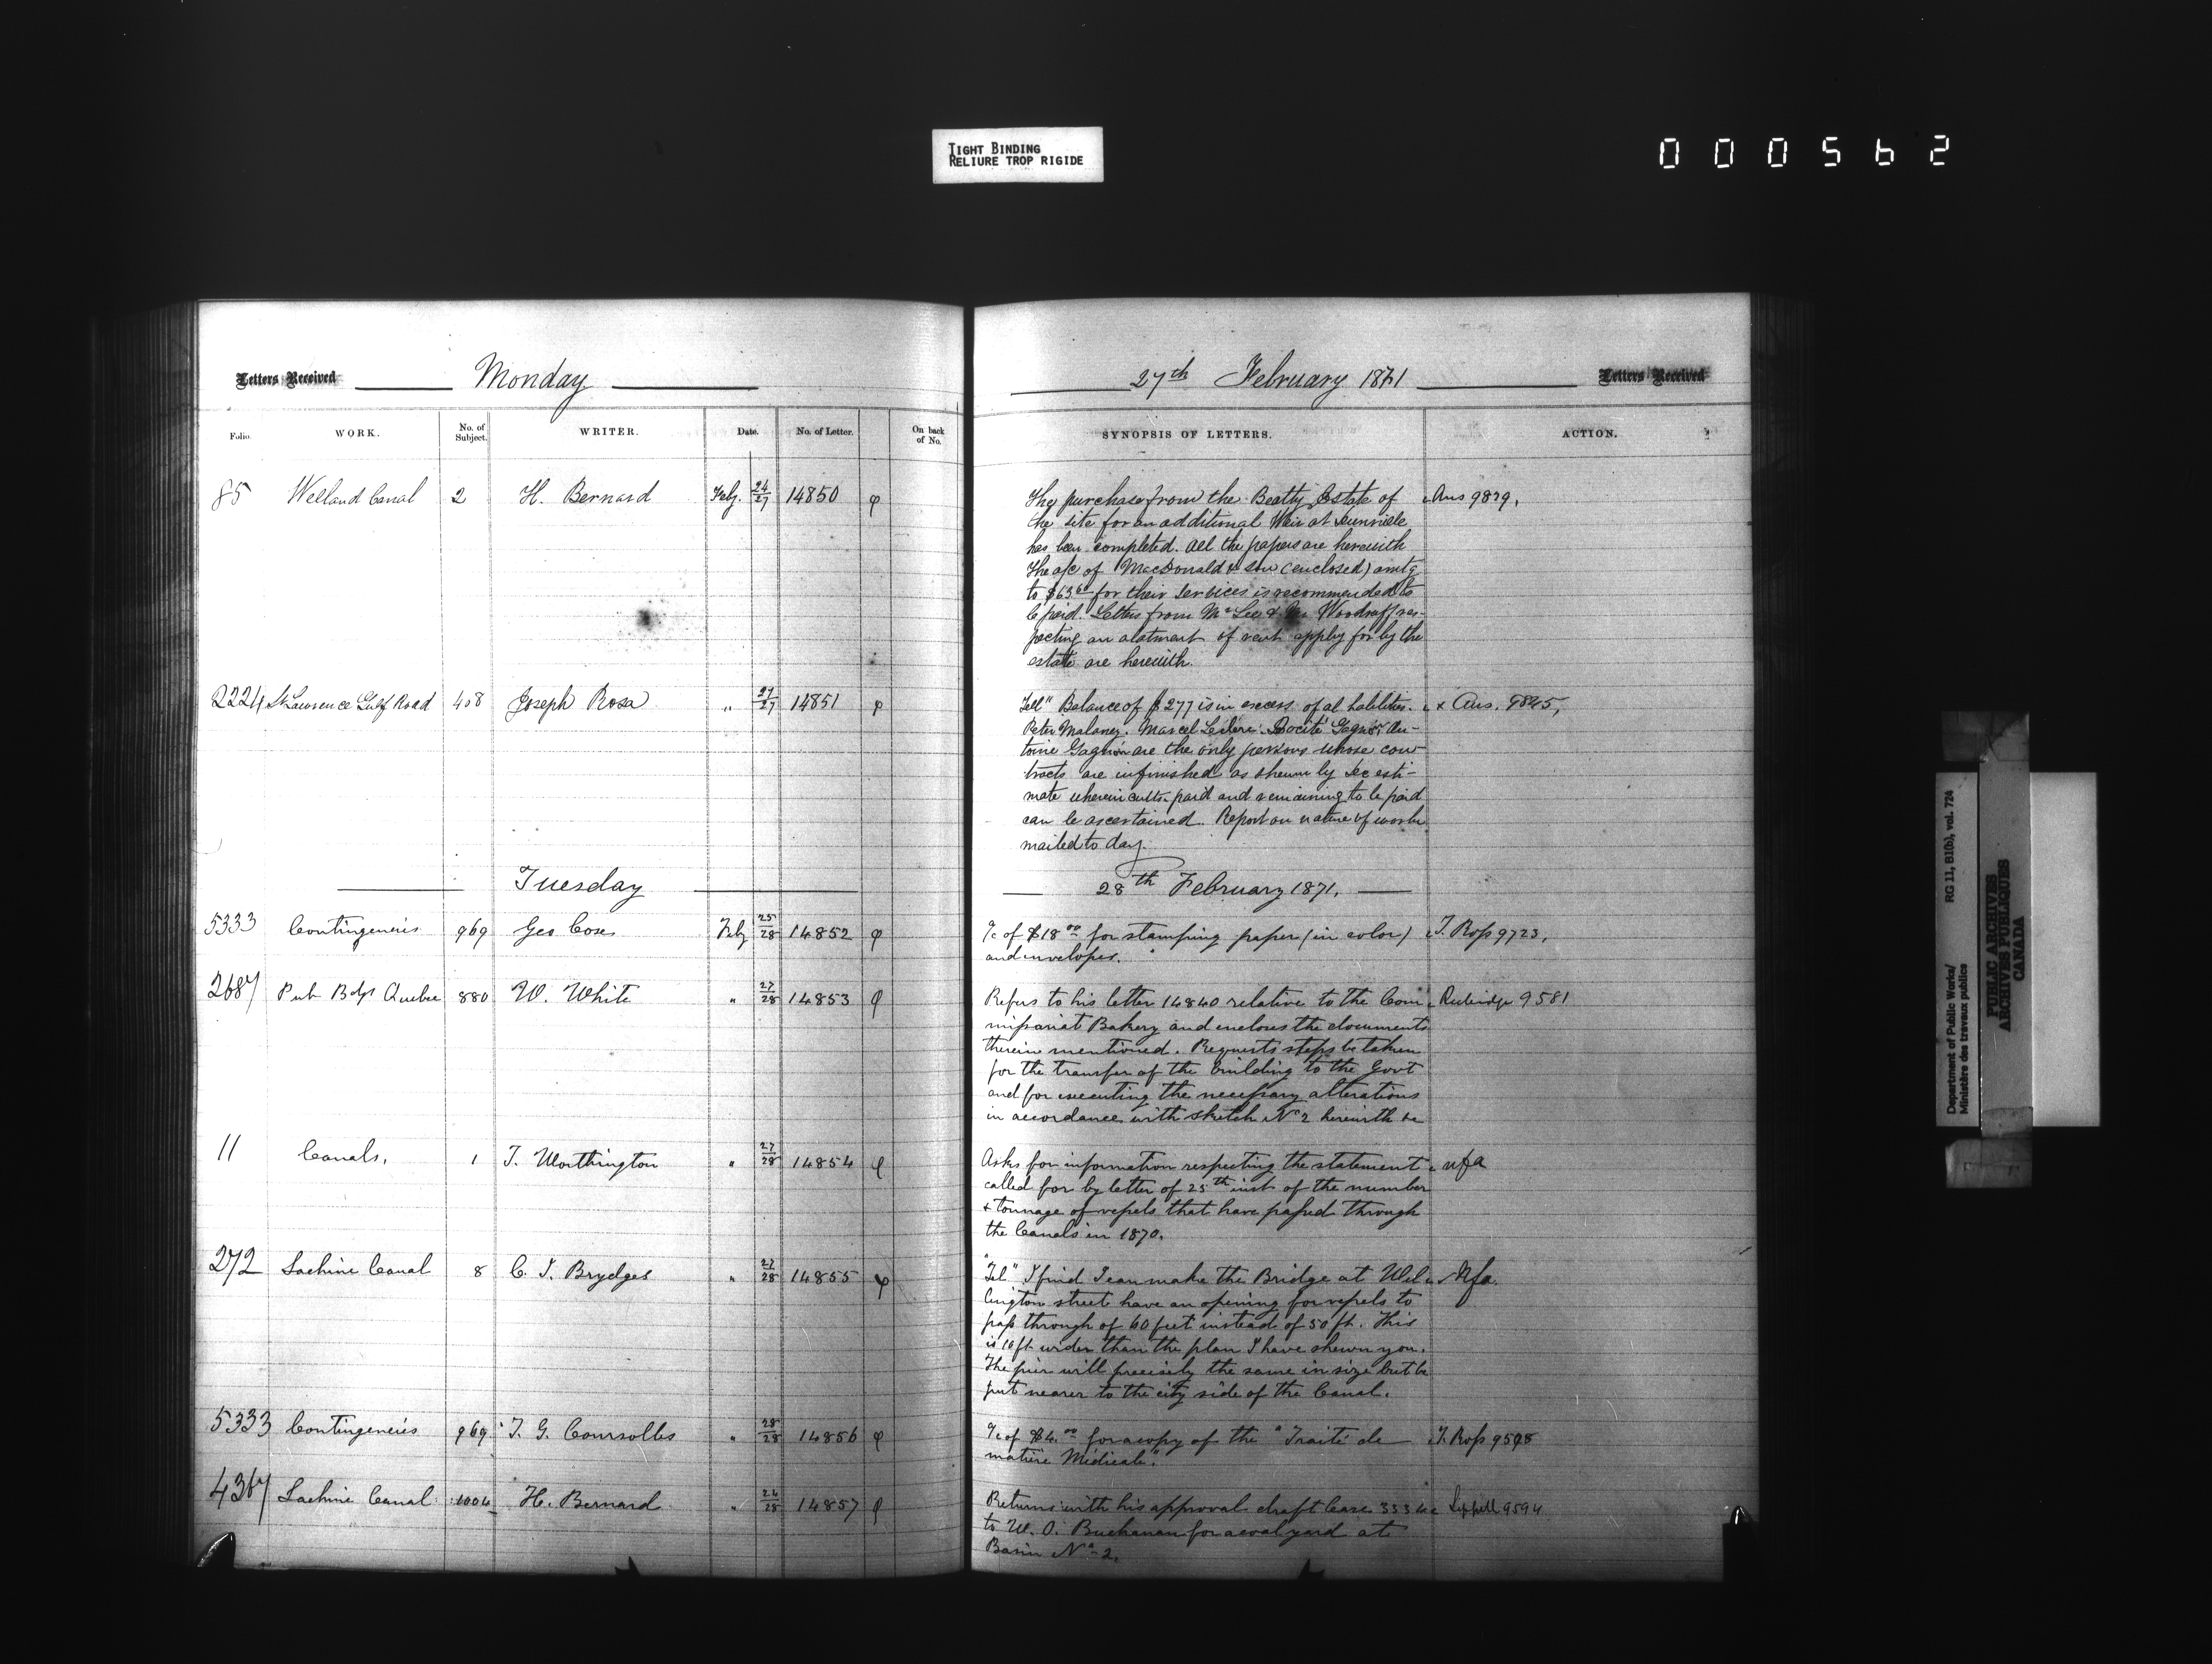 TIGHT BINDING
RELIURE TROP RIGIDE
000562
Letters Received Monday
27th February 1871 Letters Received
Folio. WORK. No. of Subject. WRITER. Date. No. of Letter. On back of No.
SYNOPSIS OF LETTERS. ACTION.
85 Welland Canal 2 H. Bernard Feby. 24/27 14850
The purchase from the Beatty Estate of Ans 9879.
the site for an additional Weir at Dunnville
has been completed. All the papers are herewith
The a/c of MacDonald & Son (enclosed) amtg
to $63 for their services is recommended to
be paid. Letters from Mr Woodruff res-
pecting an abatment of rent apply for by the
estate are herewith.
2224 St Lawrence Gulf Road 408 Joseph Rosa " 27/27 14851
Tell" Balance of $277 is in excess of al liabilities. x Ans. 9845,
Peter Malaney. Marcel Gagnon An-
toine Gagnon are the only persons whose con-
tracts are unfinished as shewn by Dec esti-
mate wherein amts. paid and remaining to be paid
can be ascertained. Report on nature of works
mailed to day.
Tuesday
28th February 1871.
5333 Contingencies 969 Geo Cox Feby 25/28 14852
a/c of $18 00 for stamping paper (in color) T. Ross 9723,
and envelopes.
2687 Pub Bdgs Quebec 880 W. White " 27/28 14853
Refers to his letter 14840 relative to the Com Rubidge 9581
missariat Bakery and encloses the documents
therein mentioned. Requests steps be taken
for the transfer of the building to the Govt
and for executing the necessary alterations
in accordance with sketch No 2 herewith &c
11 Canals, 1 T. Worthington " 27/28 14854
Asks for information respecting the statement nfa
called for by letter of 25th inst of the number
& tonnage of vessels that have passed through
the Canals in 1870.
272 Lachine Canal 8 C. J. Brydges " 27/28 14855
"Tel" I find I can make the Bridge at Wel nfa.
lington street have an opening for vessels to
pass through of 60 feet instead of 50 ft. This
is 10 ft wider than the plan I have shewn you.
The pier will precisely the same in size but be
put nearer to the city side of the Canal.
5333 Contingencies 969 T. G. Coursolles " 28/28 14856
a/c of $4.00 for a copy of the "Traité de T. Ross 9598
matière Médicale".
4367 Lachine Canal 1004 H. Bernard " 24/28 14857
Returns with his approval draft lease 3534 Sippell 9594
to W. O. Buchanan for a coal yard at
Basin No 2.
Department of Public Works/ RG 11, B1(b), vol. 724
Ministère des travaux publics
PUBLIC ARCHIVES
ARCHIVES PUBLIQUES
CANADA